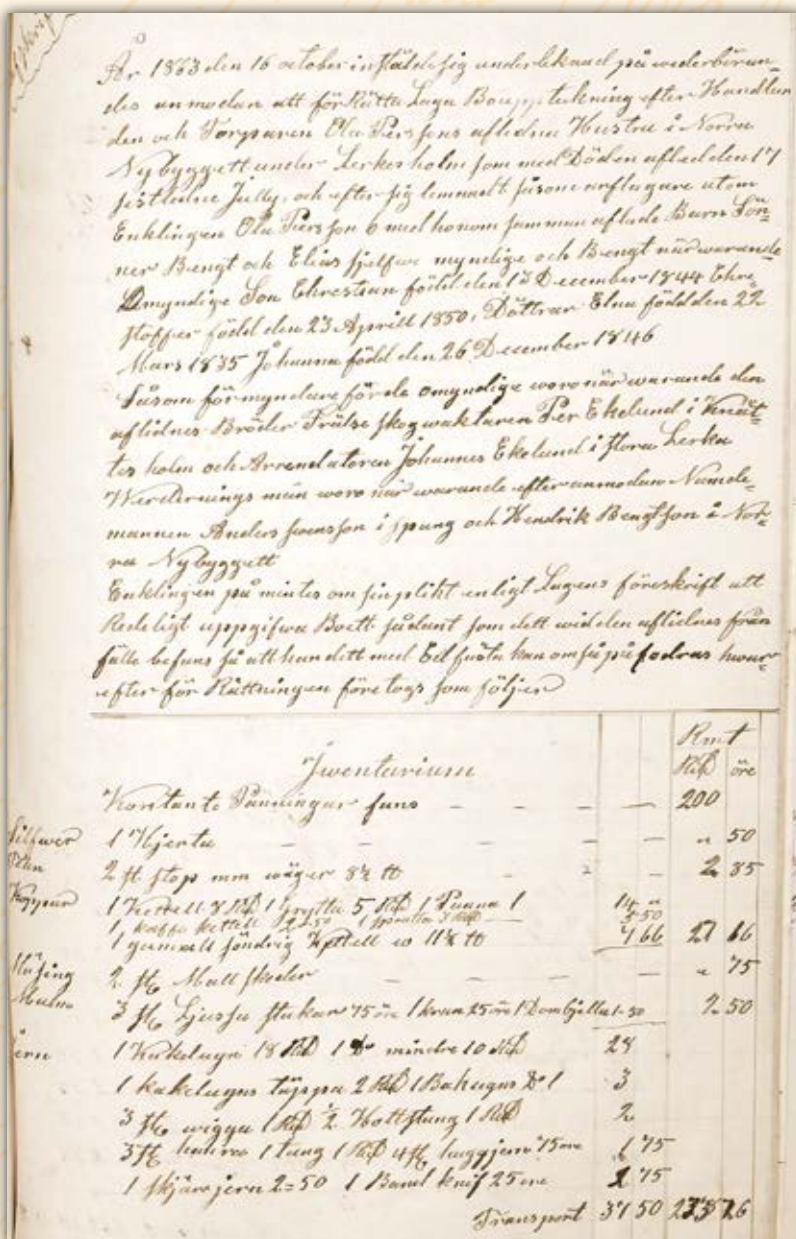 År 1863 den 16 october instälde sig underteknad på wederböran-
des anmodan att för Rätta Laga Bouppteckning efter Handlan
den och Torparen Ola Perssons aflidna Hustru i Norra
Nybyggett under Lerkesholm som med Döden afled den 17
sistledne Jully, och efter sig lemnadt såsom arftagare utom
Enklingen Ola Persson 6 med honom samman aflade Barn Sön-
ner Bengt och Elias sjelfwe myndige och Bengt närwarande
Omyndige Son Chrestian född den 13 December 1844 Chre-
stoffer född den 23 Aprill 1850, Döttrar Elna född den 22
Mars 1835 Johanna född den 26 December 1846
Såsom förmyndare för de omyndige woro närwarande den
aflidnes Bröder Frälse skogwaktaren Per Ekelund i Knät-
tesholm och Arrendatoren Johannes Ekelund i stora Lerka
Werderings män woro närwarande efter anmodan Namde-
mannen Anders Swensson i spang och Hendrik Bengtson i Nor-
ra Nybyggett
Enklingen påmintes om sin plikt enligt Lagens föreskrift att
Redeligt uppgifwa Boett sådant som dett wid den aflidnes från
fälle befans så att han dett med Ed fästa kan om så påfodras hwar-
efter för Rättningen företogs som följer
Rmt
Inventarium Rd öre
Kontante Pänningar fans — — — — 200
Silfwer 1 Hjerta — — — — " 50
Tenn 2 st. stop mm wäger 8½ tt 2 85
Koppar 1 Kettell 8 Rd 1 Grytta 5 Rd 1 Panna 1 14 "
1 kaffe kettell 2=50 1 3 Rd 5 50
1 gammell söndrig Kettell w 11½ tt 7 66 27 16
Mässing 2 st — — — — " 75
Malm 3 st Ljussa stakar 75 öre 1 kran 25 öre 1 Dombjella 1=50 2 50
Jern 1 Kakelugn 18 Rd 1 Do mindre 10 Rd 28
1 kakelugns 2 Rd 1 Bakugns Do 1 3
3 st wigga 1 Rd 2 1 Rd 2
3 st 1 tang 1 Rd 4 st huggjern 75 öre 1 75
1 skjärjern 2=50 1 Band knif 25 öre 2 75
Transport 37 50 26